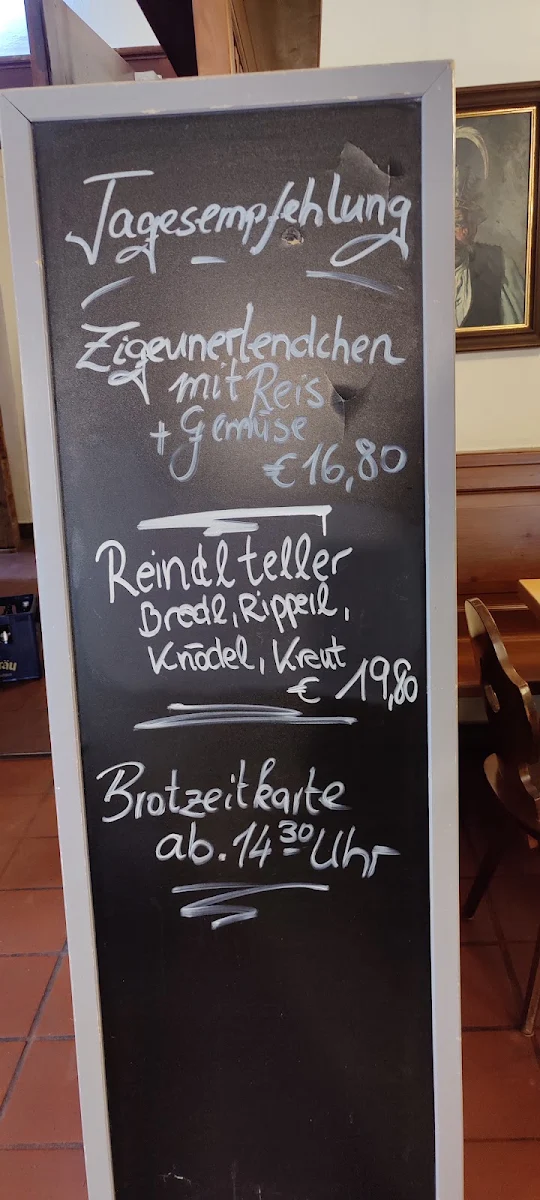 Tagesempfehlung
Zigeunerlendchen
mit Reis
+ Gemüse
€ 16,80
Reindlteller
Bredl, Ripperl,
Knödel, Kreut
€ 19,80
Brotzeitkarte
ab. 14 30 Uhr
äu